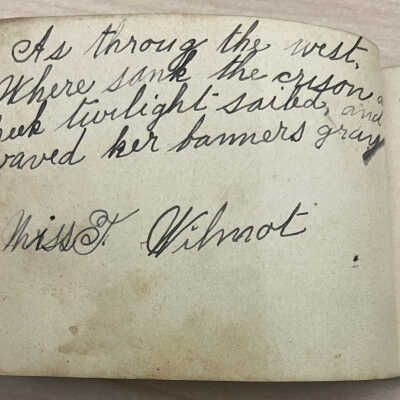 As throug the west,
Where sank the crison
twilight sailed, and
waved her banners gray
Miss F. Wilmot